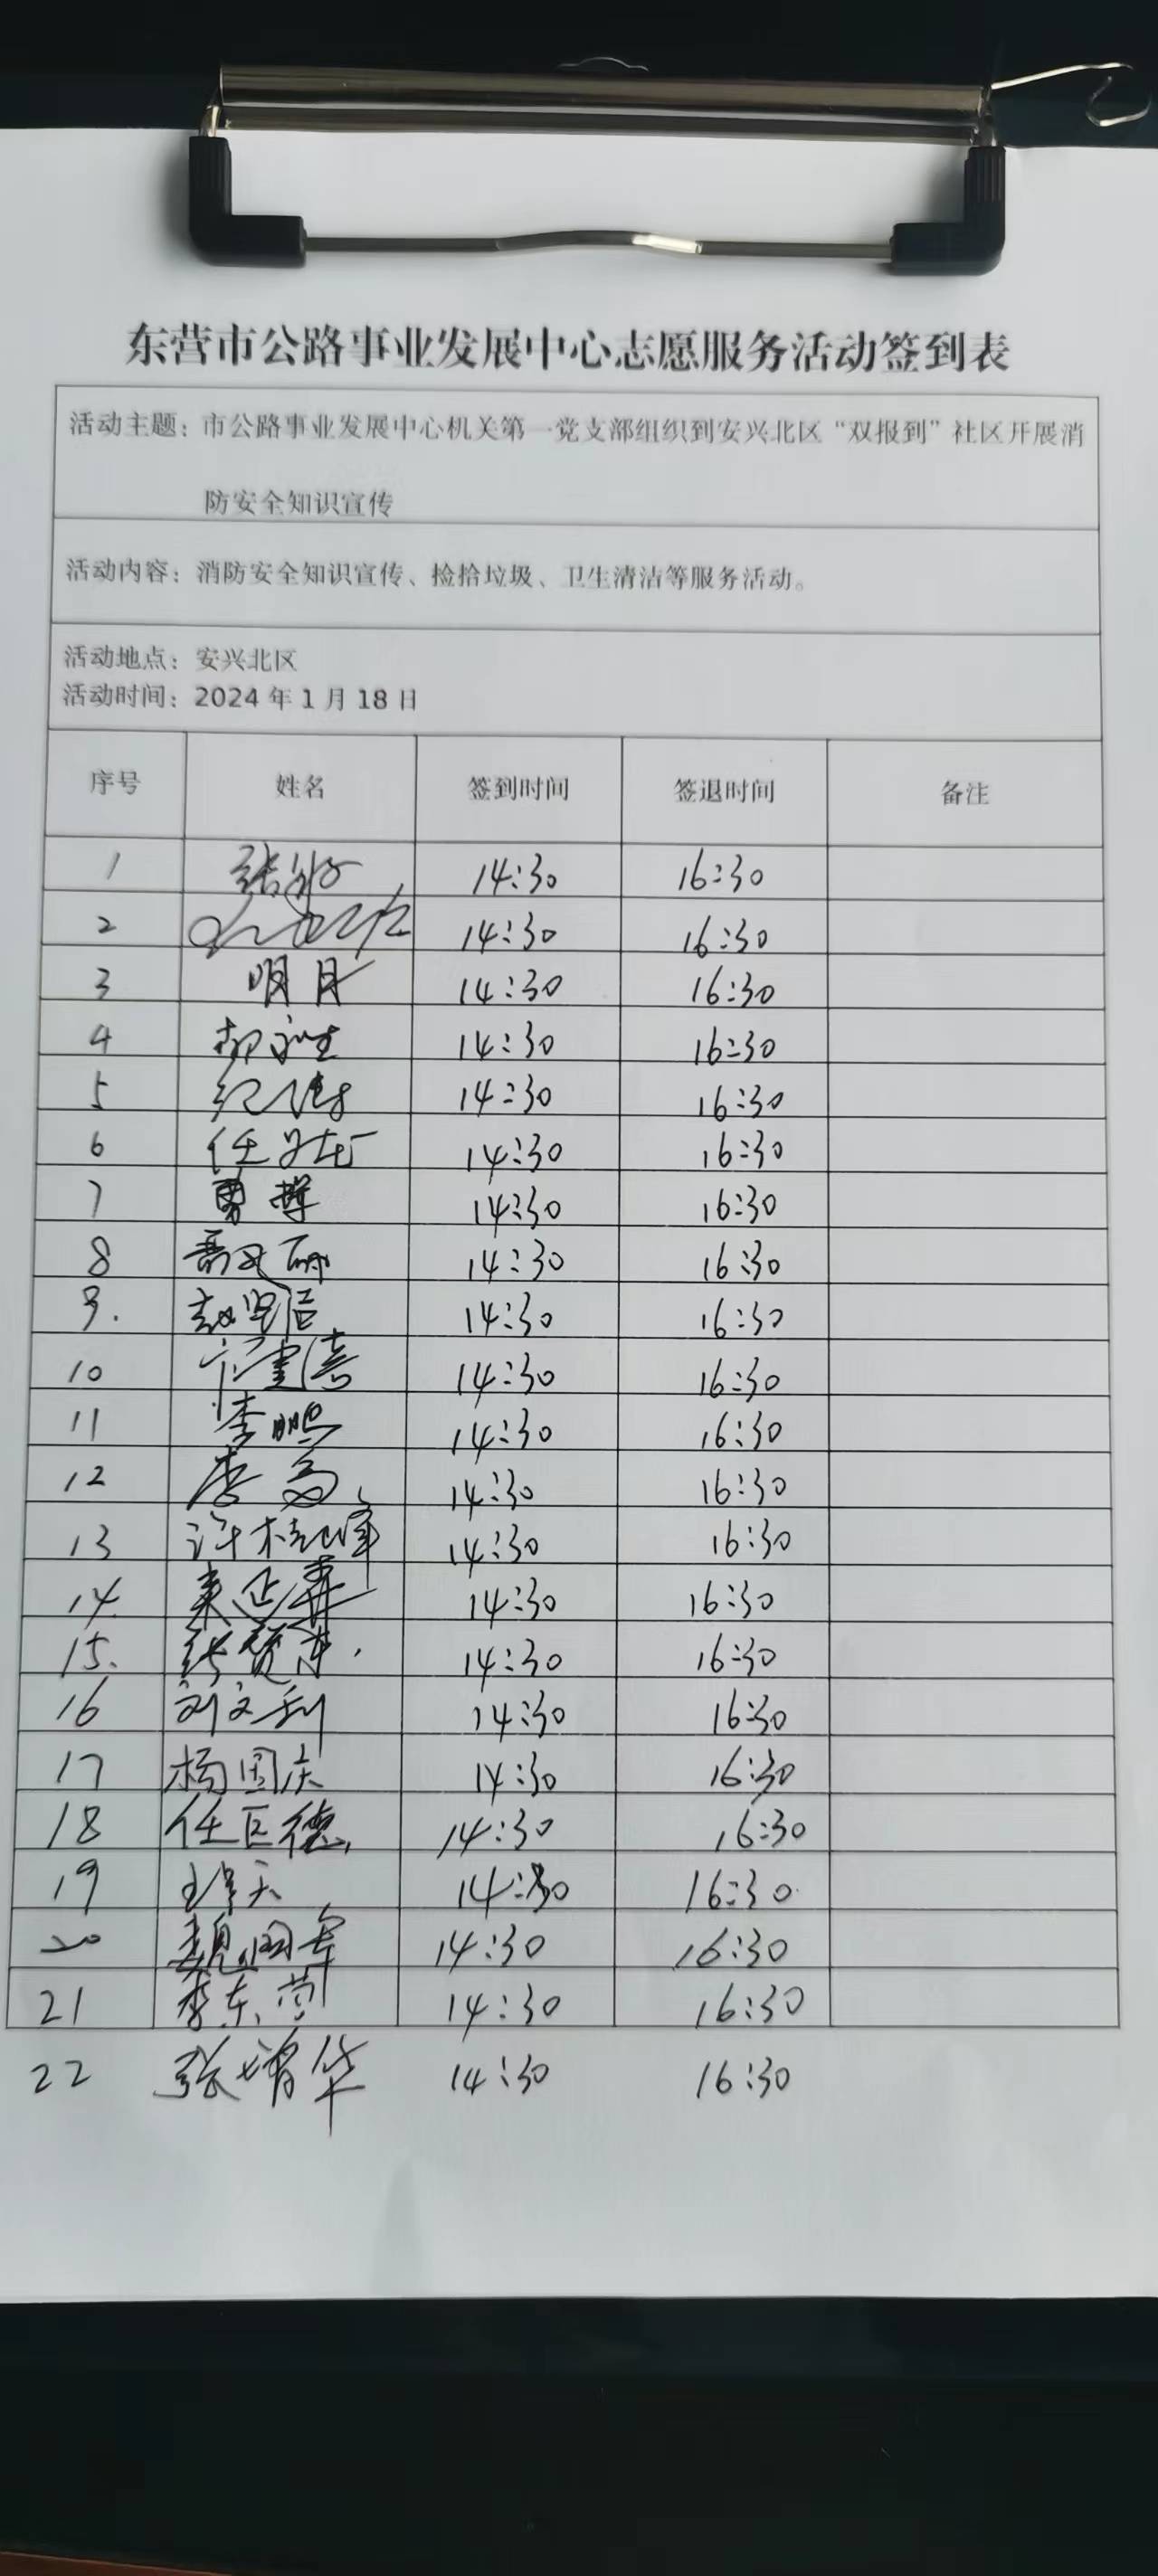 东营市公路事业发展中心志愿服务活动签到表
活动主题：市公路事业发展中心机关第一党支部组织到安兴北区“双报到”社区开展消
防安全知识宣传
活动内容：消防安全知识宣传、捡拾垃圾、卫生清洁等服务活动。
活动地点：安兴北区
活动时间：2024年1月18日
序号 姓名 签到时间 签退时间 备注
1 14:30 16:30
2 14:30 16:30
3 明月 14:30 16:30
4 14:30 16:30
5 14:30 16:30
6 任 14:30 16:30
7 曹哲 14:30 16:30
8 14:30 16:30
9. 14:30 16:30
10 14:30 16:30
11 李鹏 14:30 16:30
12 李 14:30 16:30
13 许桂峰 14:30 16:30
14 14:30 16:30
15. 张 14:30 16:30
16 刘文利 14:30 16:30
17 杨国庆 14:30 16:30
18 任巨德 14:30 16:30
19 14:30 16:30
20 魏国军 14:30 16:30
21 李东营 14:30 16:30
22 张增华 14:30 16:30